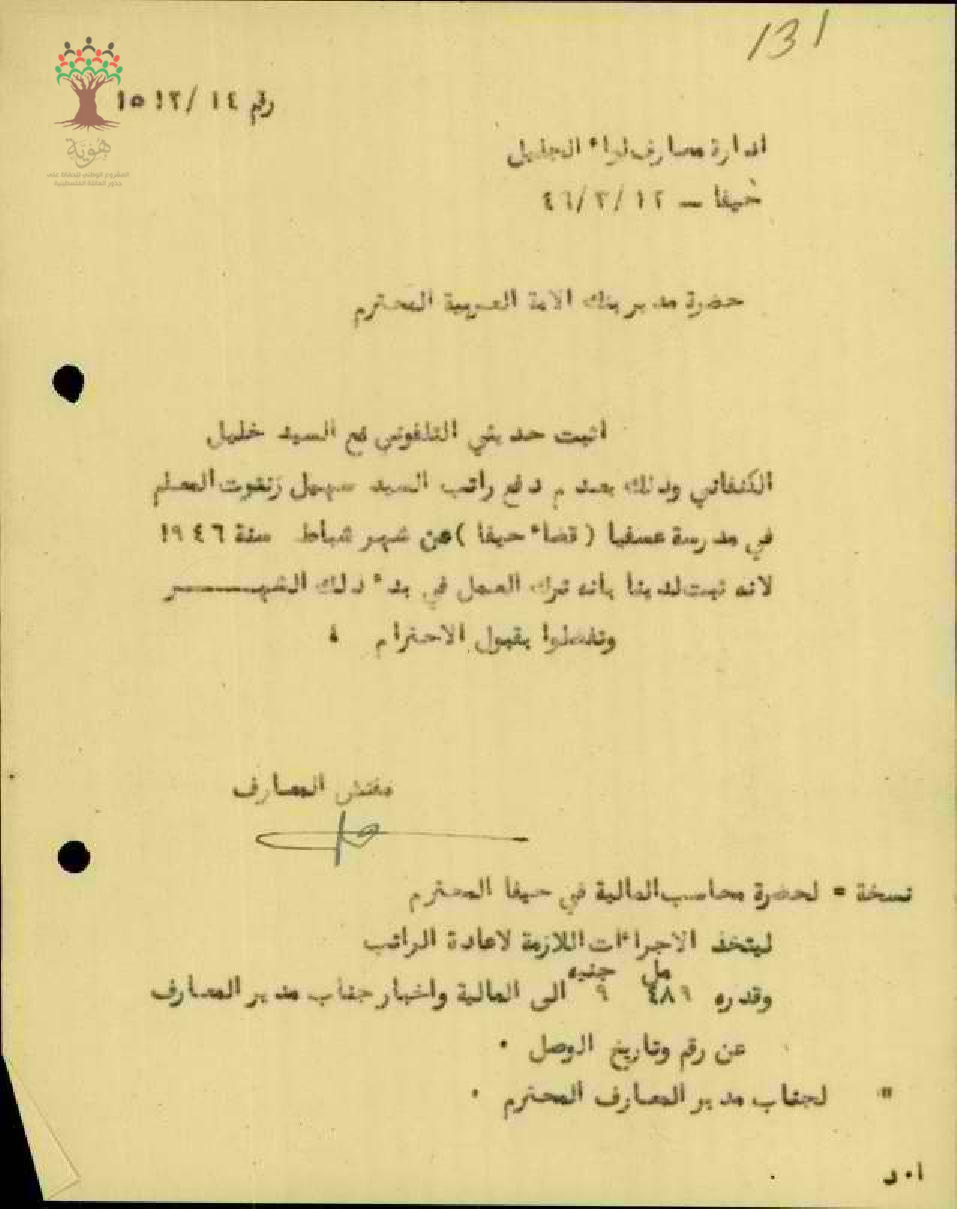 131
هوية
المشروع الوطني للحفاظ على
جذور العائلة الفلسطينية
رقم ١٤ /١٥١٢
ادارة معارف لواء الجليل
حيفا - ١٢ /٣ /٤٦
حضرة مدير بنك الامة العربية المحترم
اثبت حديثي التلفوني مع السيد خليل
الكنفاني وذلك بعدم دفع راتب السيد سهيل زنقوت المعلم
في مدرسة عسفيا ( قضاء حيفا ) عن شهر شباط سنة ١٩٤٦
لانه ثبت لدينا بانه ترك العمل في بدء ذلك الشهـــــر
وتفضلوا بقبول الاحترام ،
مفتش المعارف
نسخة = لحضرة محاسب المالية في حيفا المحترم
ليتخذ الاجراءات اللازمة لاعادة الراتب
مل جنيه
وقدره ٤٨٦ ٩ الى المالية واخبار جناب مدير المعارف
عن رقم وتاريخ الوصل .
" لجناب مدير المعارف المحترم .
أ . د